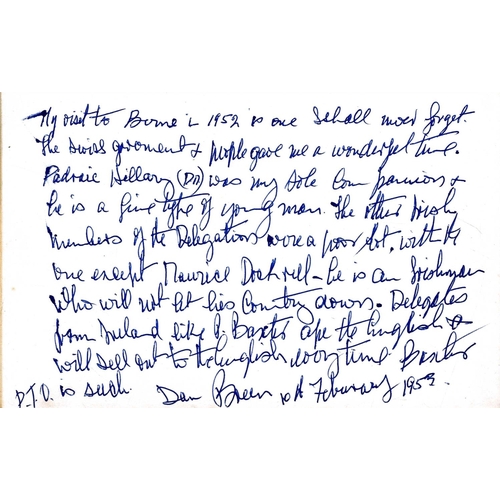 My visit to Berne in 1952 is one I shall never forget.
The Swiss goverment & people gave me a wonderful time.
Padraic Hillary (DD) was my sole Companion &
he is a fine type of young man. The other Irish
members of the Delegation were a poor lot, with the
one except Maurice Dockrell - he is an Irishman
who will not let his Country down. Delegates
from Ireland like Baxter ape the English &
will sell out to the English every time Baxter
is such. Dan Breen 10th February 1953.
P.T.O.